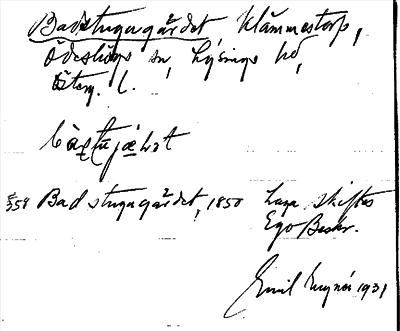 Badstugugärdet, Klämmestorp,
Ödeshögs sn, Lysings hd,
Österg. l.
§358 Badstugugärdet, 1850 Laga skiftes
Ego Beskr.
Emil 1931